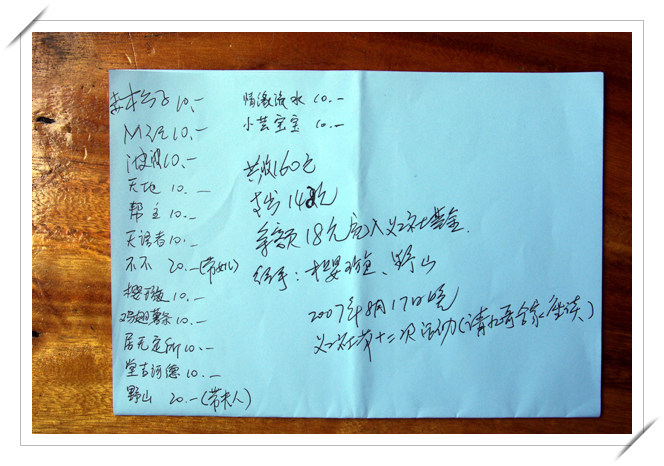 10.-
M2区 10.-
波波 10.-
天地 10.-
帮主 10.-
天语者 10.-
不不 20.-(带如儿)
樱璇 10.-
鸡翅薯条 10.-
居无定所 10.-
堂吉诃德 10.-
野山 20.-(带夫人)
情激流水 10.-
小芸宝宝 10.-
共收160元
支出142元
余额18元充入义工社基金.
经手: 樱璇、野山
2007年8月17日晚
义工社第十二次活动(请 座谈)